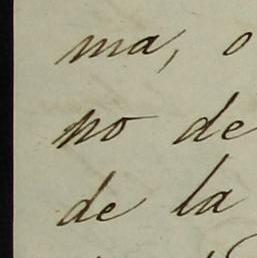 ma, o
no de
de la